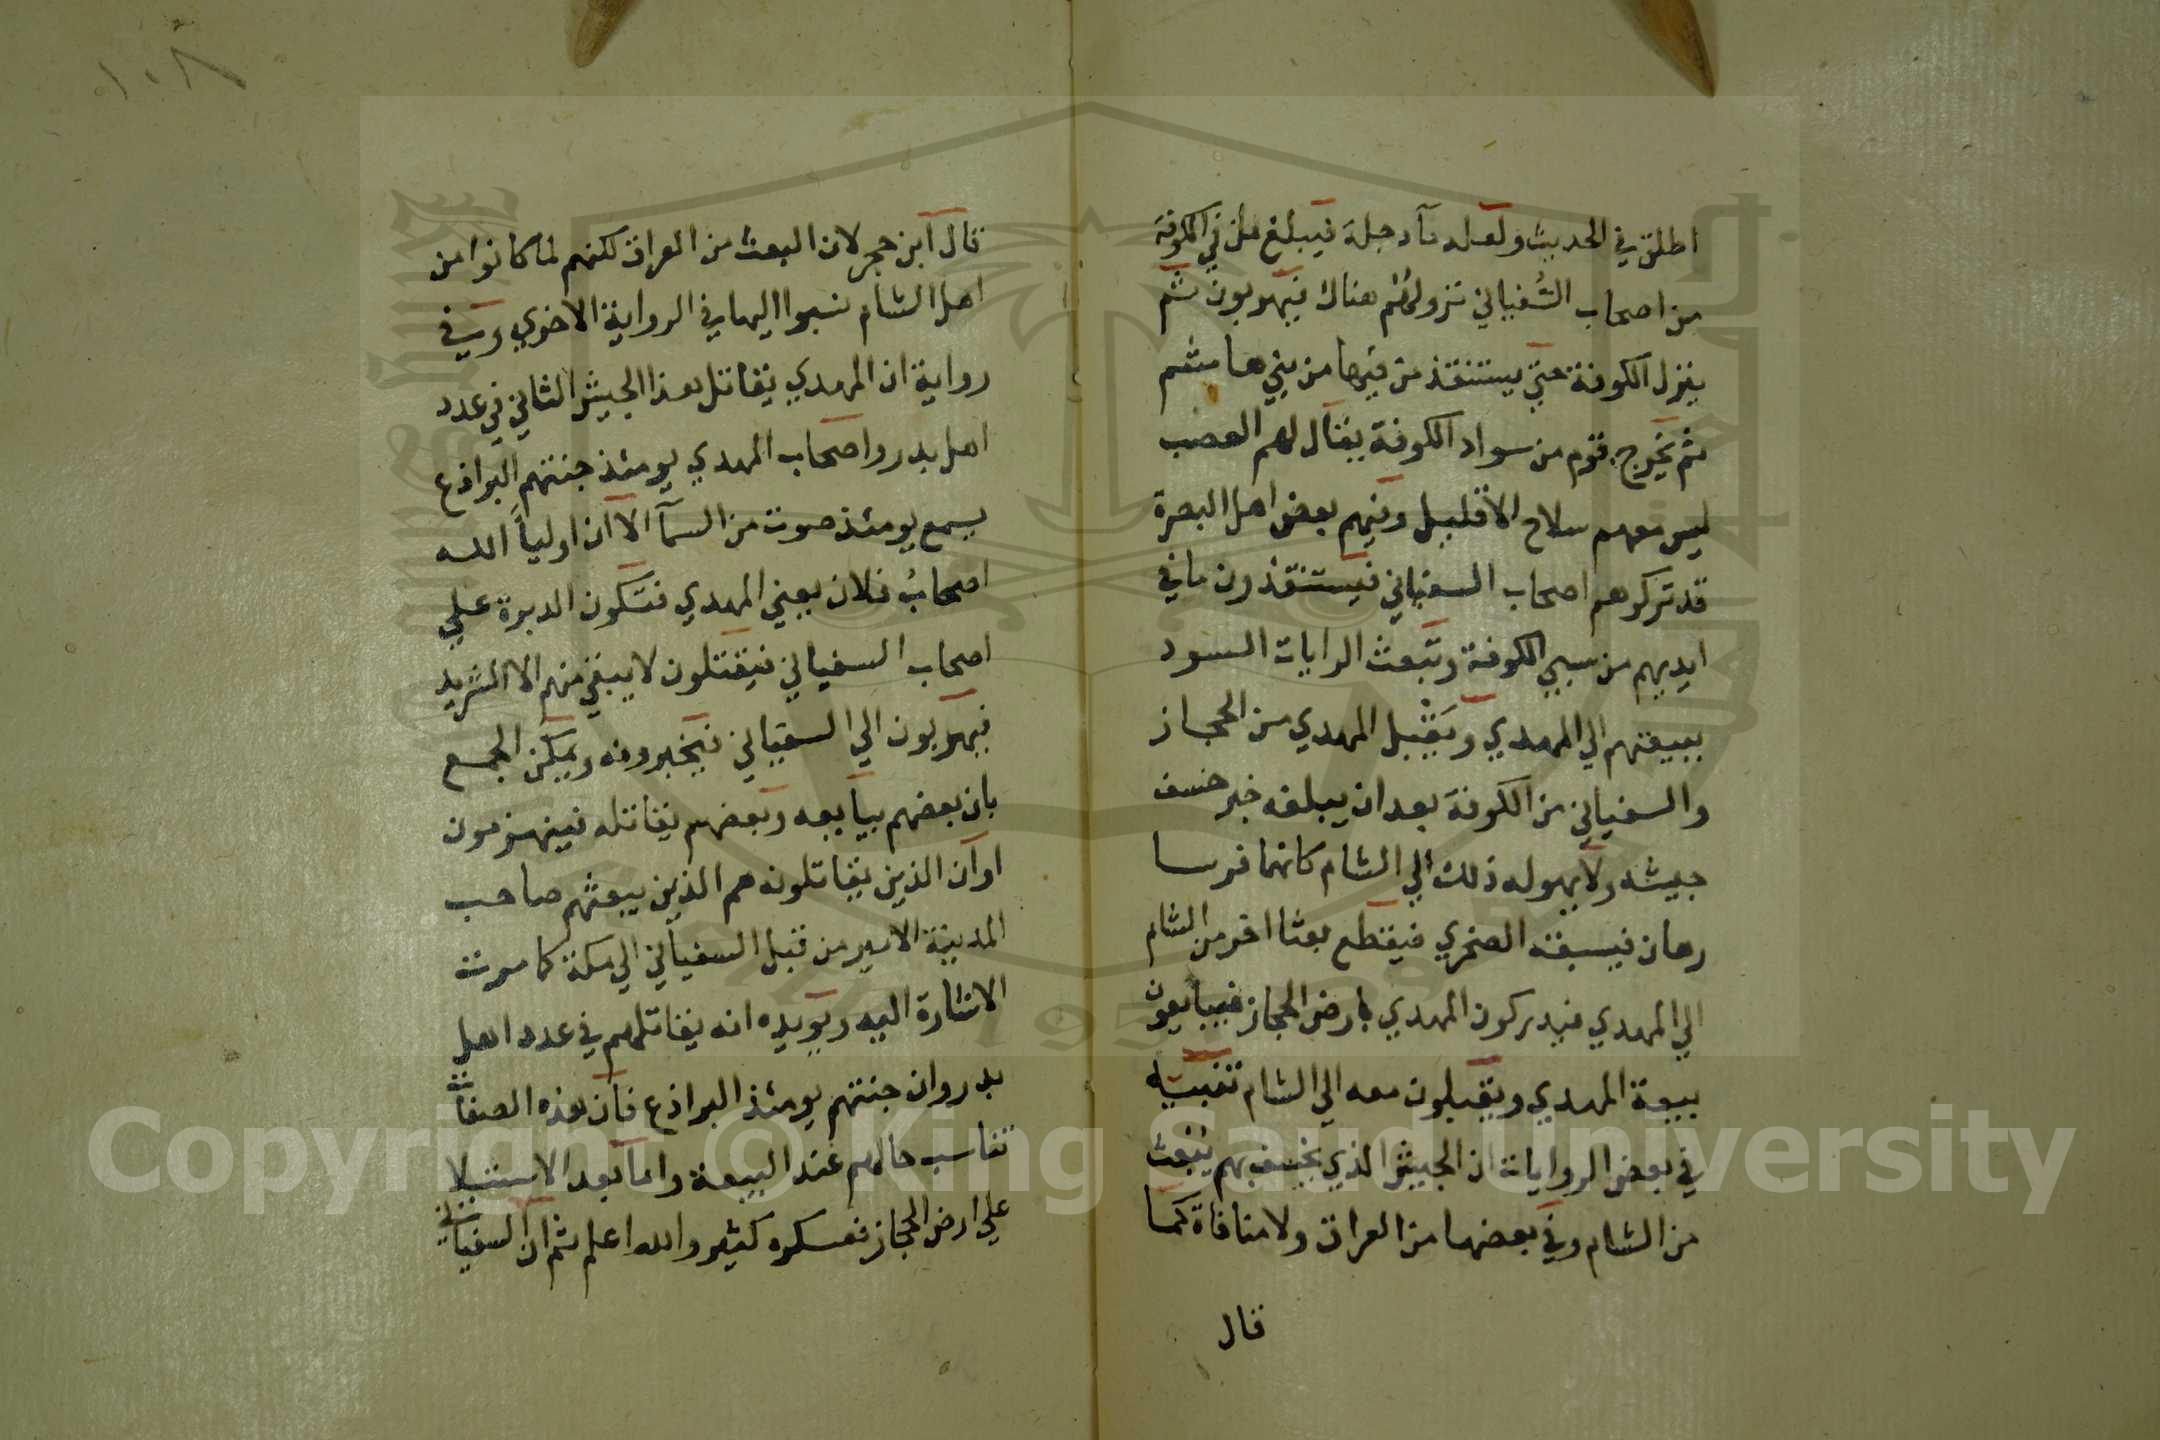 اطلق في الحديث ولعله ماء دجلة فيبلغ من في الكوفة
من اصحاب السُفياني نزولهم هناك فيهربون ثم
ينزل الكوفة حتى يستنقذ من فيها من بني هاشم
ثم يخرج قوم من سواد الكوفة يقال لهم العصب
ليس معهم سلاح الا قليل وفيهم بعض اهل البصرة
قد تركوهم اصحاب السفياني فيستنقذون ما في
ايديهم من سبي الكوفة وتبعث الرايات السود
ببيعتهم الي المهدي ويَقبل المهدي من الحجاز
والسفياني من الكوفة بعد ان يبلغه خبر خسف
جيشه ولا يهوله ذلك الي الشام كانهما فرسا
رهان فيسبقه الصخري فيقطع بعثا اخر من الشام
الي المهدي فيدركون المهدي بارض الحجاز فيبايعون
بيعة المهدي ويقبلون معه الي الشام تنبيه
في بعض الروايات ان الجيش الذي يخسف بهم يبعث
من الشام وفي بعضها من العراق ولا منافاة كما
قال
١٠٨
قال ابن حجر لان البعث من العراق لكنهم لما كانوا من
اهل الشام نسبوا اليها في الرواية الاخري وفي
رواية ان المهدي يقاتل هذا الجيش الثاني في عدد
اهل بدر واصحاب المهدي يومئذ جنتهم البراذع
يسمع يومئذ صوت من السمآ الا ان اولياءَ الله
اصحابُ فلان يعني المهدي فتكون الدبرة علي
اصحاب السفياني فيقتلون لا يبقي منهم الا الشريد
فيهربون الي السفياني فيخبرونه ويمكن الجمع
بان بعضهم يبايعه وبعضهم يقاتله فينهزمون
او ان الذين يقاتلونه هم الذين يبعثهم صاحب
المدينة الامير من قبل السفياني الي مكة كما مرت
الاشارة اليه ويويده انه يقاتلهم في عدد اهل
بدر وان جنتهم يومئذ البراذع فان هذه الصفات
تناسب حالهم عند البيعة واما بعد الاستيلا
علي ارض الحجاز فعسكره كثير والله اعلم ثم ان السفياني
Copyright © King Saud University